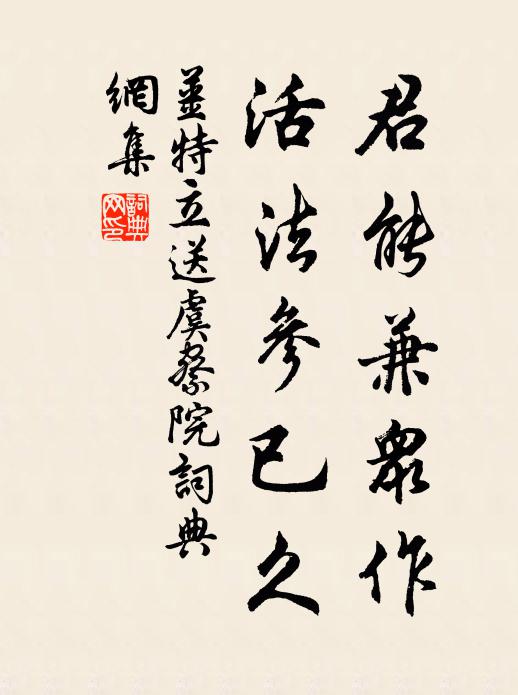 君能兼衆作
活法參已久
薑特立送虞察院詞典
網集
詞典
网印